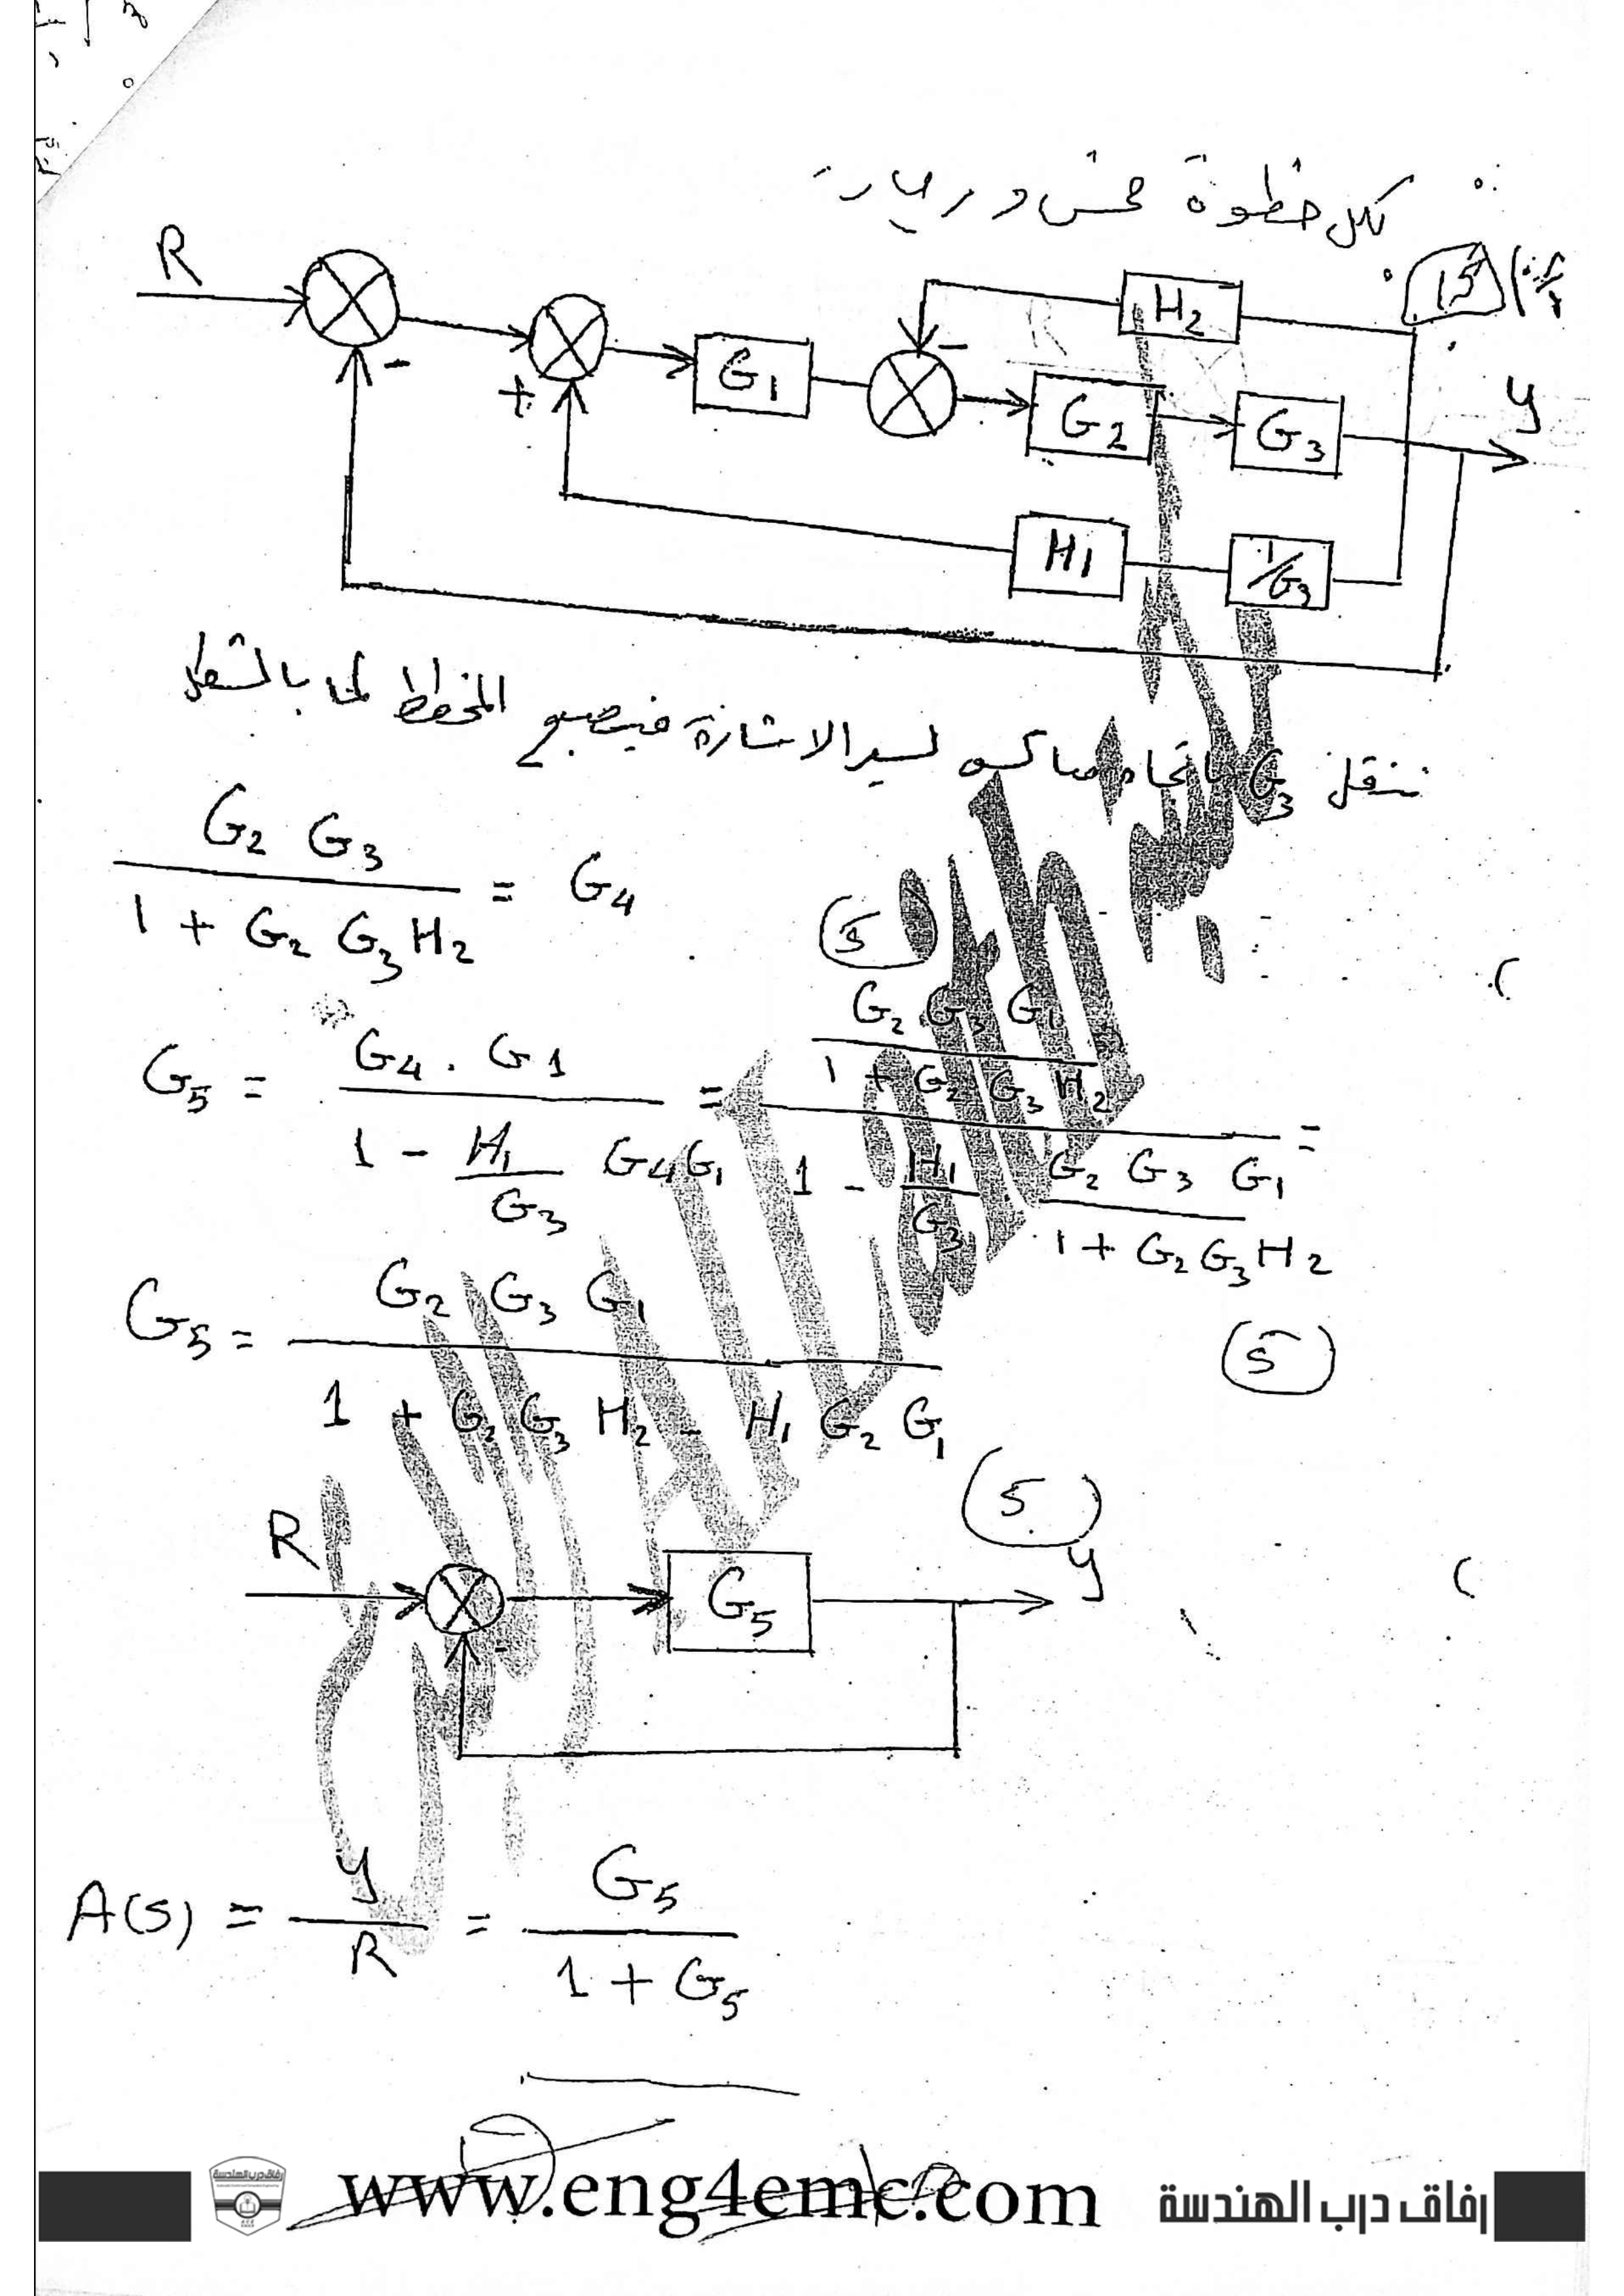 لكل خطوة خمس درجات
15
R
H2
-
-
+
G1
G2
G3
y
H1
1/G3
ننقل G3 باتجاه معاكس لسير الاشارة فيصبح المخطط كما بالشكل
G2 G3 / 1 + G2 G3 H2 = G4
5
G5 = G4 . G1 / 1 - H1/G3 G4G1 = G2 G3 G1 / 1 + G2 G3 H2 / 1 - H1/G3 . G2 G3 G1 / 1 + G2G3H2 =
5
G5 = G2 G3 G1 / 1 + G2 G3 H2 - H1 G2 G1
5
R
G5
y
-
A(s) = y/R = G5 / 1 + G5
www.eng4emc.com
رفاق درب الهندسة